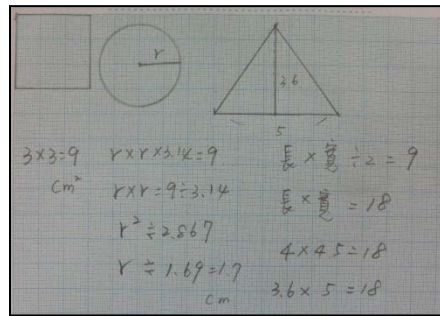 r
3.6
5
3×3=9
cm²
r×r×3.14=9
r×r=9÷3.14
r²≒2.867
r≒1.69=1.7
cm
× ÷2=9
× =18
4×4.5=18
3.6×5=18